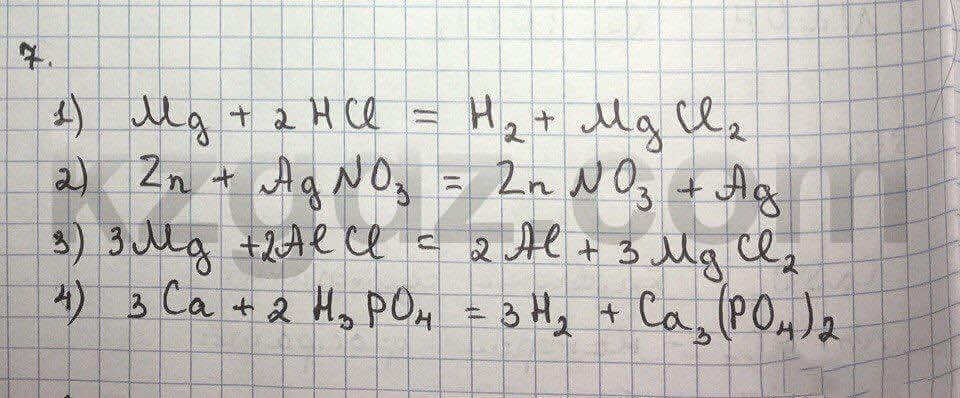 7.
1) Mg + 2HCl = H₂ + MgCl₂
2) Zn + AgNO₃ = ZnNO₃ + Ag
3) 3Mg + 2AlCl = 2Al + 3MgCl₂
4) 3Ca + 2H₃PO₄ = 3H₂ + Ca₃(PO₄)₂
kzgdz.com